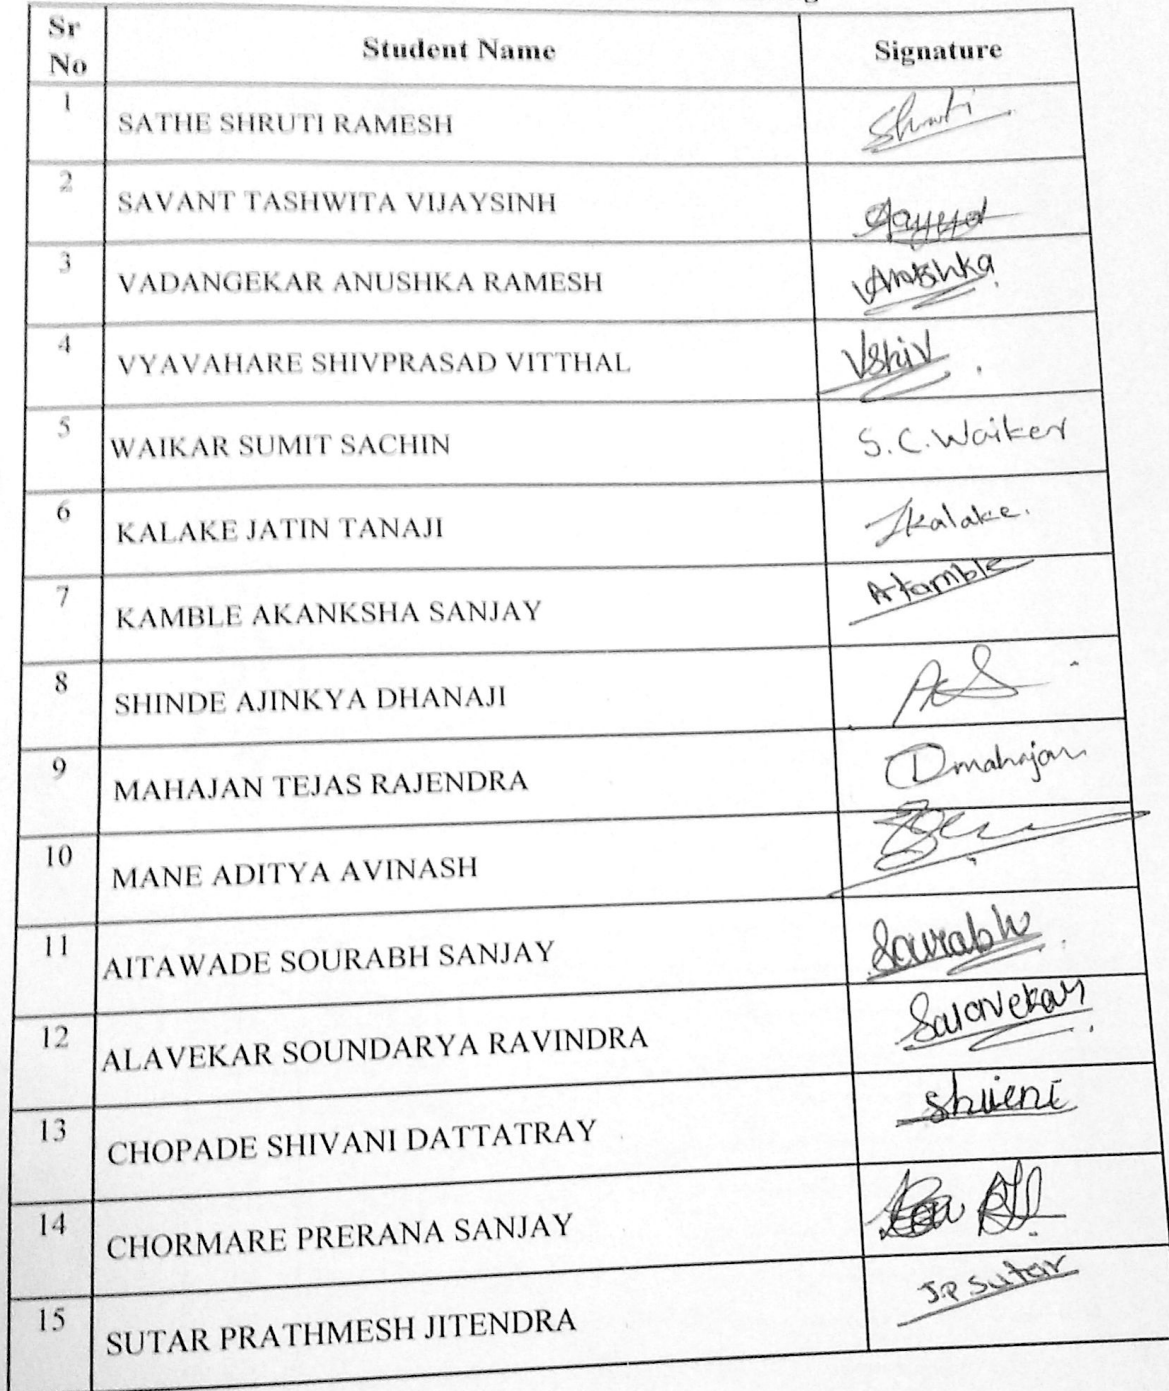 Sr No Student Name Signature
1 SATHE SHRUTI RAMESH Shruti
2 SAVANT TASHWITA VIJAYSINH
3 VADANGEKAR ANUSHKA RAMESH
4 VYAVAHARE SHIVPRASAD VITTHAL Vshiv
5 WAIKAR SUMIT SACHIN S.C.Waiker
6 KALAKE JATIN TANAJI Jkalake.
7 KAMBLE AKANKSHA SANJAY
8 SHINDE AJINKYA DHANAJI
9 MAHAJAN TEJAS RAJENDRA Dmahajan
10 MANE ADITYA AVINASH
11 AITAWADE SOURABH SANJAY Sourabh
12 ALAVEKAR SOUNDARYA RAVINDRA
13 CHOPADE SHIVANI DATTATRAY
14 CHORMARE PRERANA SANJAY
15 SUTAR PRATHMESH JITENDRA J.P Sutar